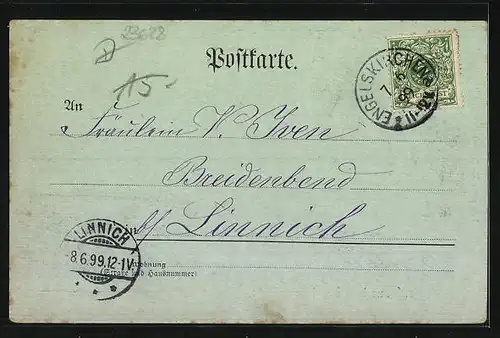 23628
Postkarte.
15-
ENGELSKIRCHEN
7 6 99
11-12V
An
Fräulein V. Iven
Breidenbend
in b/ Linnich
LINNICH
8.6.99.12-1V
Wohnung
(Straße und Hausnummer)